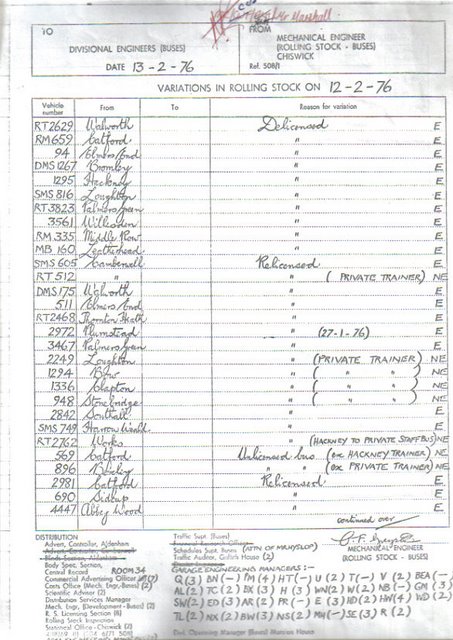 Mr Marshall
TO
DIVISIONAL ENGINEERS (BUSES)
DATE 13-2-76
FROM
MECHANICAL ENGINEER
(ROLLING STOCK - BUSES)
CHISWICK
Ref. 508/1
VARIATIONS IN ROLLING STOCK ON 12-2-76
Vehicle number From To Reason for variation
RT2629 Walworth Delicensed E
RM659 Catford " E
94 Elmers End " E
DMS1267 Bromley " E
1295 Hackney " E
SMS816 Loughton " E
RT3823 Palmers Green " E
3561 Willesden " E
RM335 Middle Row " E
MB160 Leatherhead " E
SMS605 Camberwell Relicensed E
RT512 " " (PRIVATE TRAINER) NE
DMS175 Walworth " E
511 Elmers End " E
RT2468 Thornton Heath " E
2972 Plumstead " (27-1-76) E
3467 Palmers Green " E
2249 Loughton " (PRIVATE TRAINER) NE
1294 Bow " ( " " ) NE
1336 Clapton " ( " " ) NE
948 Stonebridge " ( " " ) NE
2842 Southall " E
SMS749 Harrow Weald " E
RT2762 Works " (HACKNEY TO PRIVATE STAFF BUS) NE
569 Catford Unlicensed bus (ex HACKNEY TRAINER) E
896 Bexley " (ex PRIVATE TRAINER) E
2981 Catford Relicensed E
690 Sidcup " E
4447 Abbey Wood " E
continued over
DISTRIBUTION
Advert. Controller, Aldenham
Body Spec. Section,
Central Record ROOM 34
Commercial Advertising Officer (7)
Costs Office (Mech. Engr.-Buses) (2)
Scientific Adviser (2)
Distribution Services Manager
Mech. Engr. (Development - Buses) (2)
R. S. Licensing Section (8)
Rolling Stock Inspection
Statistical Office - Chiswick (2)
Traffic Supt. (Buses)
Schedules Supt. Buses (ATTN OF MR HYSLOP)
Traffic Auditor, Griffith House (2)
GARAGE ENGINEERING MANAGERS :-
MECHANICAL ENGINEER
(ROLLING STOCK - BUSES)
Q(3) BN(-) TM(4) HT(-) U(2) T(-) V(2) BEA(-)
AL(2) TC(2) BX(3) H(3) WN(2) W(2) NB(-) GM(3)
SW(2) ED(3) AR(2) PR(-) E(3) HD(2) HW(4) WD(2)
TL(2) NX(2) BW(3) NS(2) MH(-) SE(3) R(2)
Divl. Operating Manager (Buses) Mansion House